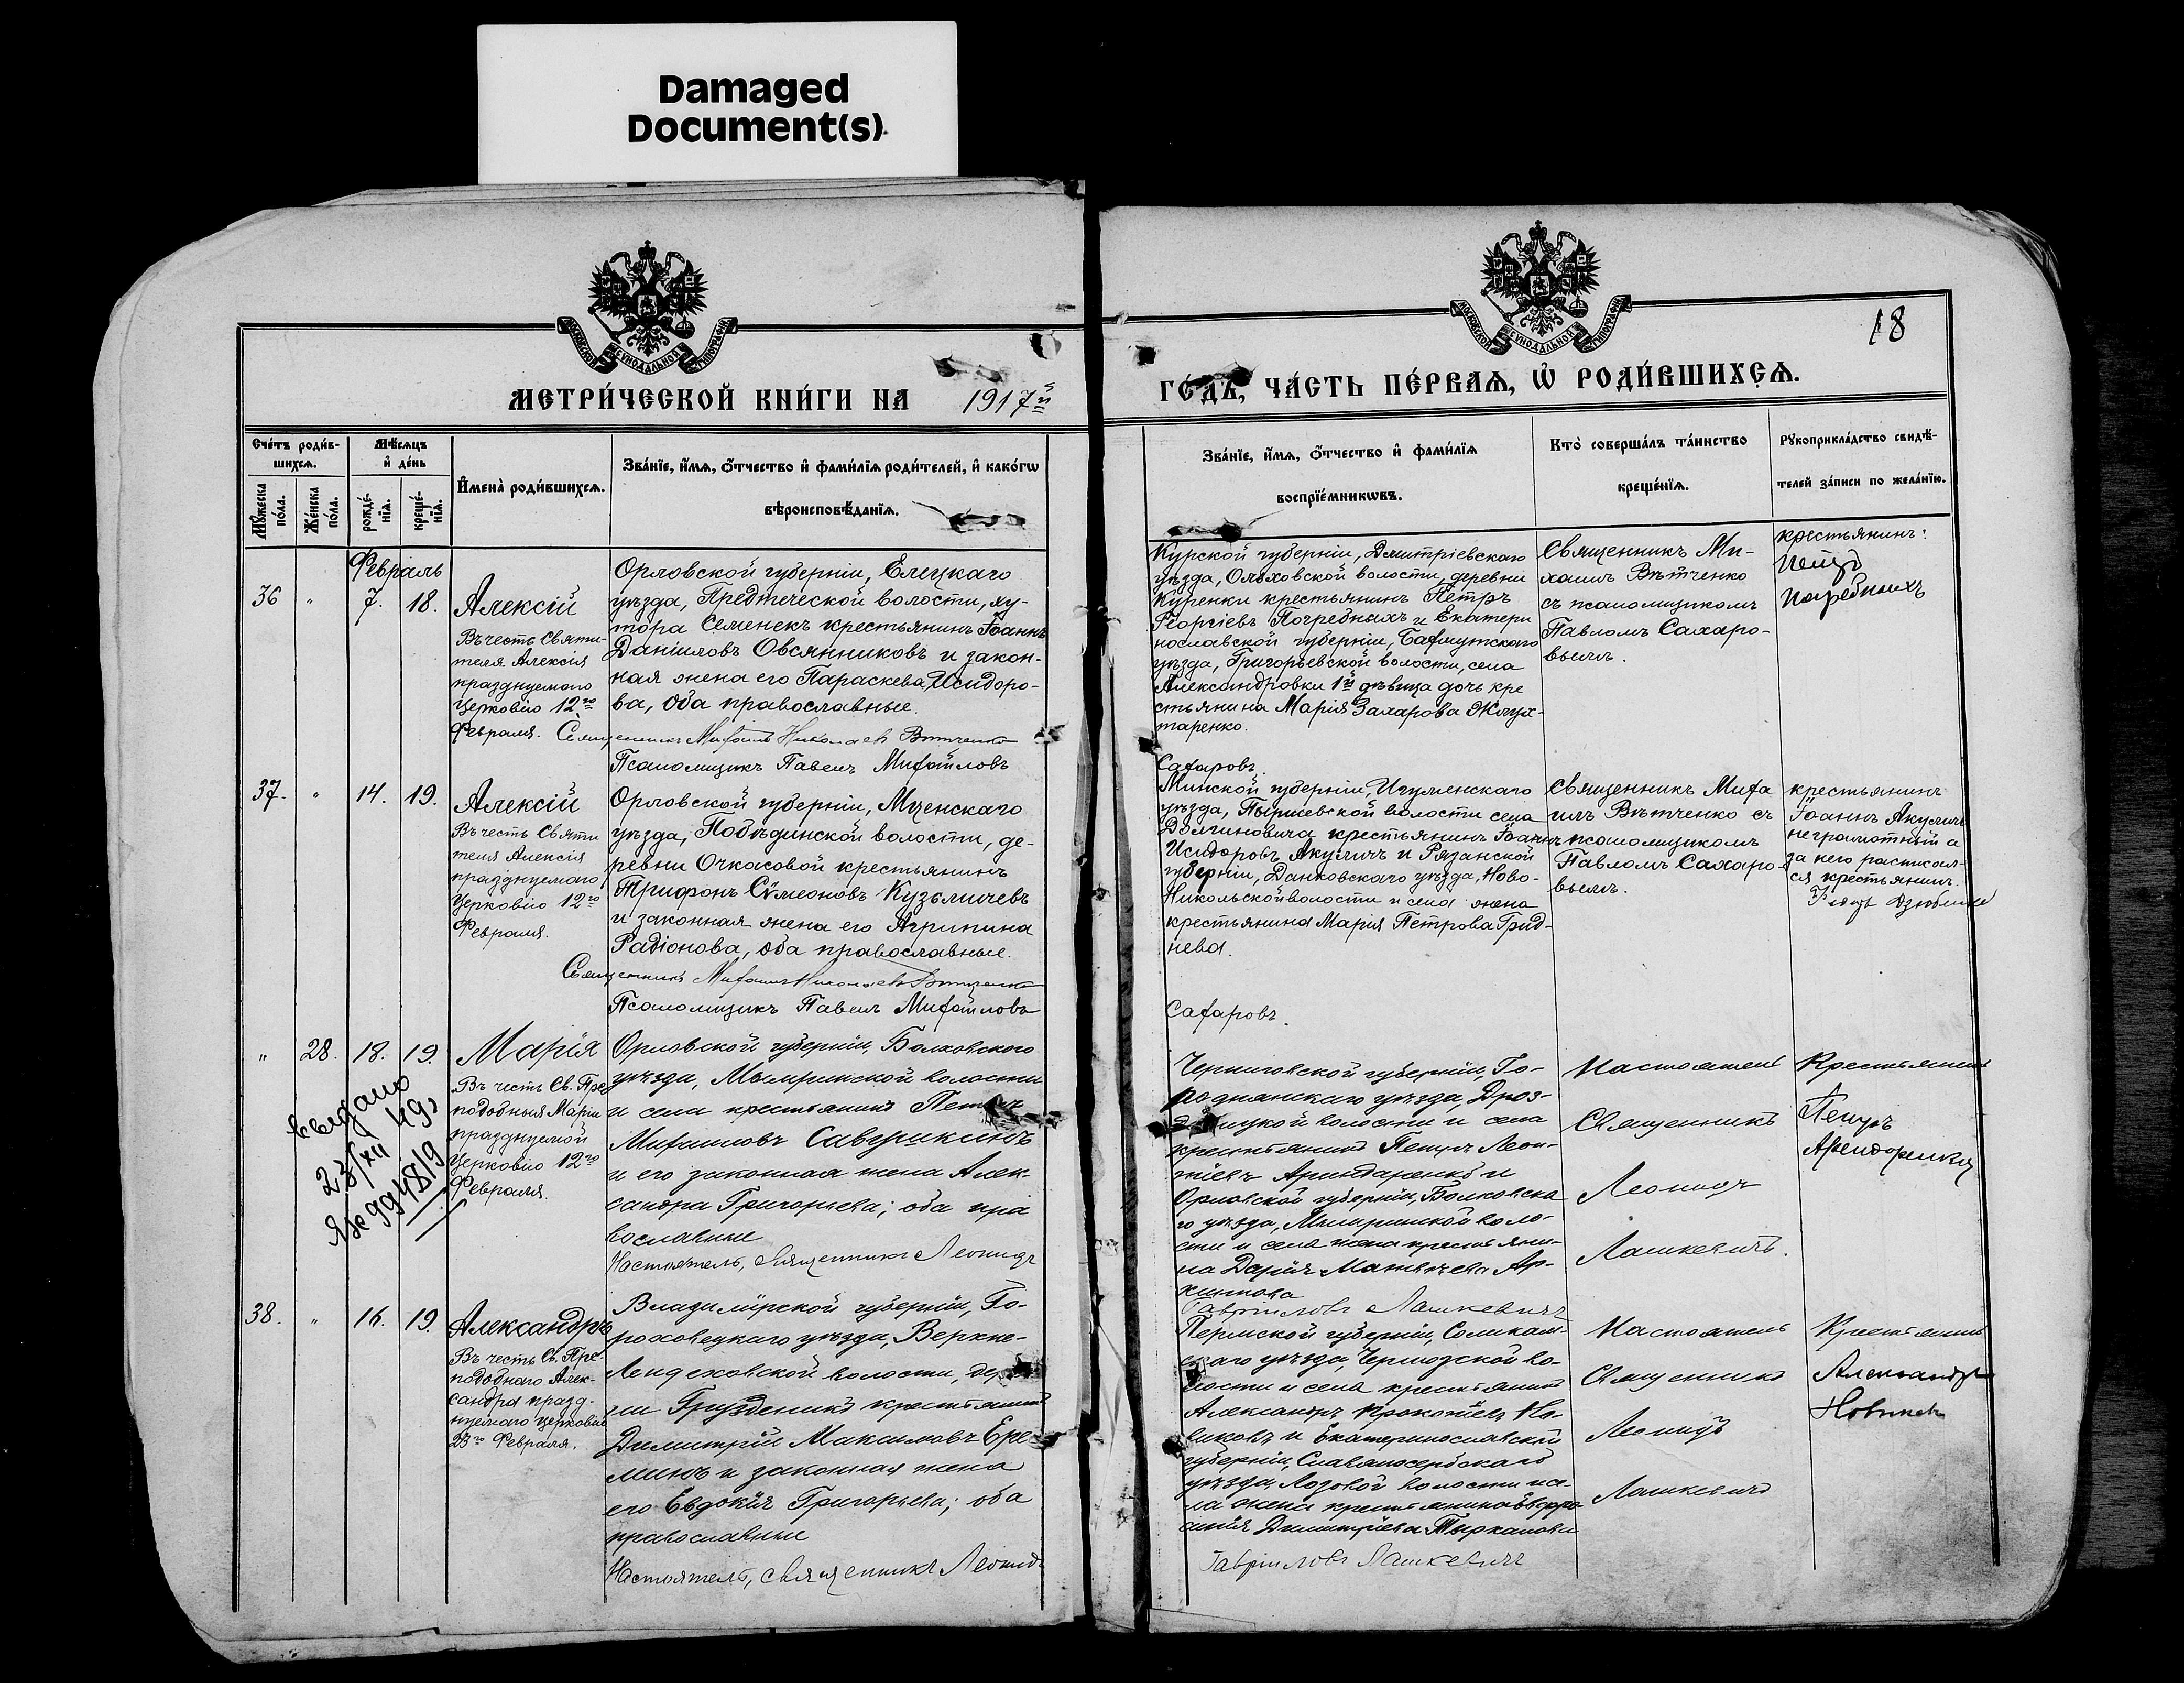 Damaged
Document(s)
МОСКОВСКОЙ СУНОДАЛЬНОЙ ТИПОГРАФІИ
МОСКОВСКОЙ СУНОДАЛЬНОЙ ТИПОГРАФІИ
18
МЕТРИ́ЧЕСКОЙ КНИ́ГИ НА 1917й
ГО́ДЪ, ЧА́СТЬ ПЕ́РВАѦ, Ѡ҆ РОДИ́ВШИХСѦ.
Сче́тъ роди́в-
шихсѧ.
Мꙋ́жеска по́ла.
Же́нска по́ла.
Мѣ́сѧцъ
и҆ де́нь
рожде́-
нїѧ.
креще́-
нїѧ.
И҆мена̀ роди́вшихсѧ.
Зва́нїе, и҆́мѧ, ѻ҆́тчество и҆ фами́лїѧ роди́телей, и҆ како́гѡ
вѣроисповѣ́данїѧ.
Зва́нїе, и҆́мѧ, ѻ҆́тчество и҆ фами́лїѧ
воспрїе́мникѡвъ.
Кто̀ соверша́лъ та́инство
креще́нїѧ.
Рꙋкоприкла́дство свидѣ́-
телей за́писи по жела́нїю.
Февраль
36 " 7. 18.
Алексій
Въ честь Святи-
теля Алексія
празднуемаго
Церковію 12го
Февраля.
Орловской губерніи, Елецкаго
уѣзда, Предтеческой волости, ху-
тора Семенекъ крестьянинъ Іоаннъ
Даніиловъ Овсянниковъ и закон-
ная жена его Параскева Исидоро-
ва, оба православные.
Священникъ Михаилъ Николаевъ Вѣтченко
Псаломщикъ Павелъ Михайловъ
Курской губерніи, Дмитріевскаго
уѣзда, Ольховской волости, деревни
Куренки крестьянинъ Петръ
Георгіевъ Погребныхъ и Екатери
нославской губерніи, Бахмутскаго
уѣзда, Григорьевской волости, села
Александровки 1й дѣвица дочь кре
стьянина Марія Захарова Жлух-
таренко.
Сахаровъ.
Священникъ Ми-
хаилъ Вѣтченко
съ псаломщикомъ
Павломъ Сахаро-
вымъ.
крестьянинъ:
Петръ
Погребныхъ
37. " 14. 19.
Алексій
Въ честь Святи
теля Алексія
празднуемаго
Церковію 12го
Февраля.
Орловской губерніи, Мценскаго
уѣзда, Побѣдинской волости, де-
ревни Очкасовой крестьянинъ
Трифонъ Сѵмеоновъ Кузьмичевъ
и законная жена его Агрипина
Радіонова, оба православные.
Священникъ Михаилъ Николаевъ Вѣтченко
Псаломщикъ Павелъ Михайловъ
Минской губерніи, Игуменскаго
уѣзда, волости села
крестьянинъ Іоаннъ
Исидоровъ Акуличъ и Рязанской
губерніи, Данковскаго уѣзда, Ново-
Никольской волости и села жена
крестьянина Марія Петрова Грид-
нева.
Сахаровъ.
Священникъ Миха
илъ Вѣтченко съ
псаломщикомъ
Павломъ Сахаро-
вымъ.
крестьянинъ
Іоаннъ Акуличъ
неграмотный а
за него расписал-
ся крестьянинъ
" 28. 18. 19.
выдано
23/XII 49
Марія
Въ честь Св. Пре
подобныя Маріи
празднуемой
Церковію 12го
Февраля.
Орловской губерніи, Болховского
уѣзда, Мымринской волости
и села крестьянинъ Петръ
Михаиловъ Саврикинъ
и его законная жена Алек-
сандра Григорьева; оба пра
вославные
Настоятель, Священникъ Леонидъ
Черниговской губерніи, Го-
роднянскаго уѣзда, Дроз-
дицкой волости и села
крестьянинъ Петръ Леон-
тіевъ Арендаренко и
Орловской губерніи, Болховска
го уѣзда, Мымринской воло-
сти и села жена крестьяни-
на Дарія Матвѣева Ар-
хипова
Гавріиловъ Лашкевичъ
Настоятель
Священникъ
Леонидъ
Лашкевичъ.
Крестьянинъ
Петръ
Арендаренко
38. " 16. 19.
Александръ
Въ честь Св. Пре
подобнаго Алек-
сандра празд-
нуемаго Церковію
23го Февраля.
Владимірской губерніи, Го-
роховецкаго уѣзда, Верхне-
Ландеховской волости, дерев
ни крестьянинъ
Димитрій Максимовъ Ере-
минъ и законная жена
его Евдокія Григорьева; оба
православные
Настоятель, священникъ Леонидъ
Пермской губерніи, Соликам-
скаго уѣзда, Чермозской во-
лости и села крестьянинъ
Александръ Прокопіевъ Но-
виковъ и Екатеринославской
губерніи, Славяносербскаго
уѣзда, Лозовой волости и се-
ла жена крестьянина Евфро
синія Димитріева Тырканова
Гавріиловъ Лашкевичъ
Настоятель
Священникъ
Леонидъ
Лашкевичъ
Крестьянинъ
Александръ
Новиковъ